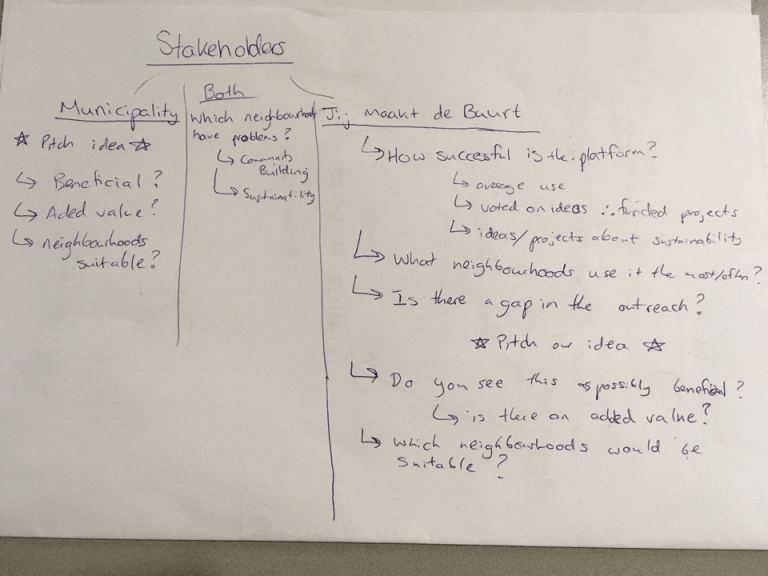 Stakeholders
Municipality
☆ Pitch idea ☆
↳ Beneficial?
↳ Added value?
↳ neighbourhoods
suitable?
Both
Which neighbourhoods
have problems?
↳ Community
Building
↳ Sustainability
Jij maakt de Buurt
↳ How succesful is the platform?
↳ average use
↳ voted on ideas ∴ funded projects
↳ ideas/projects about sustainability
↳ What neighbourhoods use it the most/often?
↳ Is there a gap in the outreach?
☆ Pitch our idea ☆
↳ Do you see this as possibly beneficial?
↳ is there an added value?
↳ which neighbourhoods would be
suitable?